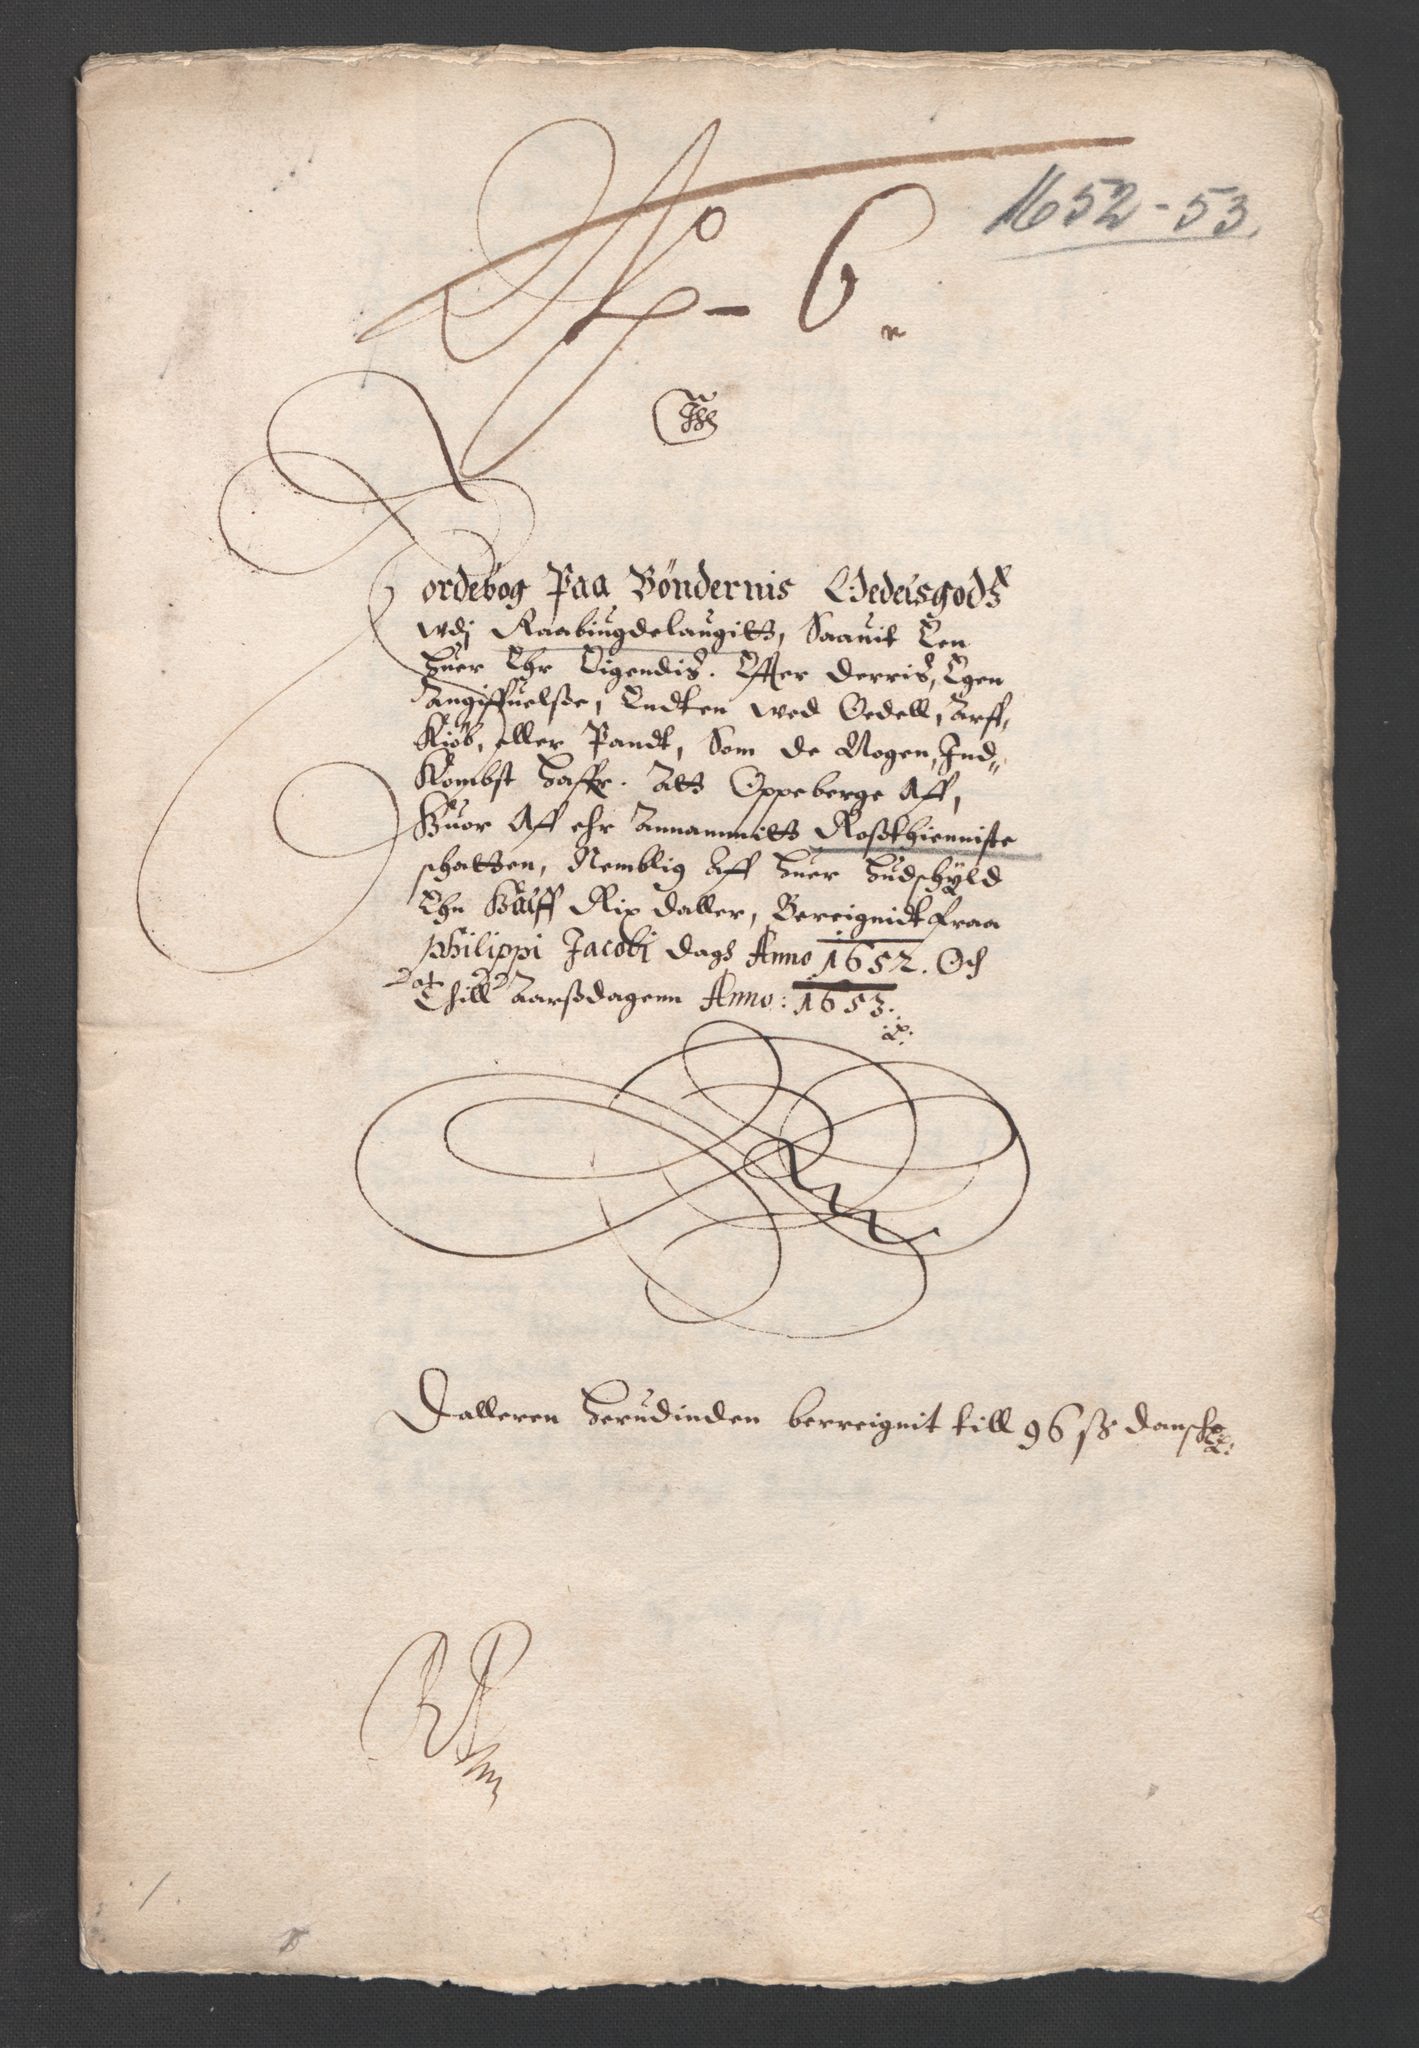 1652-53.
No - 6
Jordebog Paa Böndernis Oedelsgodß
udj Raabiugdelaugitt, Saauit Een
huer Ehr Eigendis. Effter derris, Egen
Angiffuelße, Endten wed Oedell, Arff,
Kiöb, eller Pandt, Som de Nogen, Ind-
Kombst haffr. Att Oppeberge Aff,
Huor Aff ehr Annammitt Roßthienniste
schatten, Nemblig Aff huer hudschyld
Ehn Halff Rix daller, Bereignidt fraa
Philippi Jacobj dags Anno 1652. Och
Thill Aarßdagenn Anno: 1653.
Dalleren herudinden berreignit till 96 ß dansche